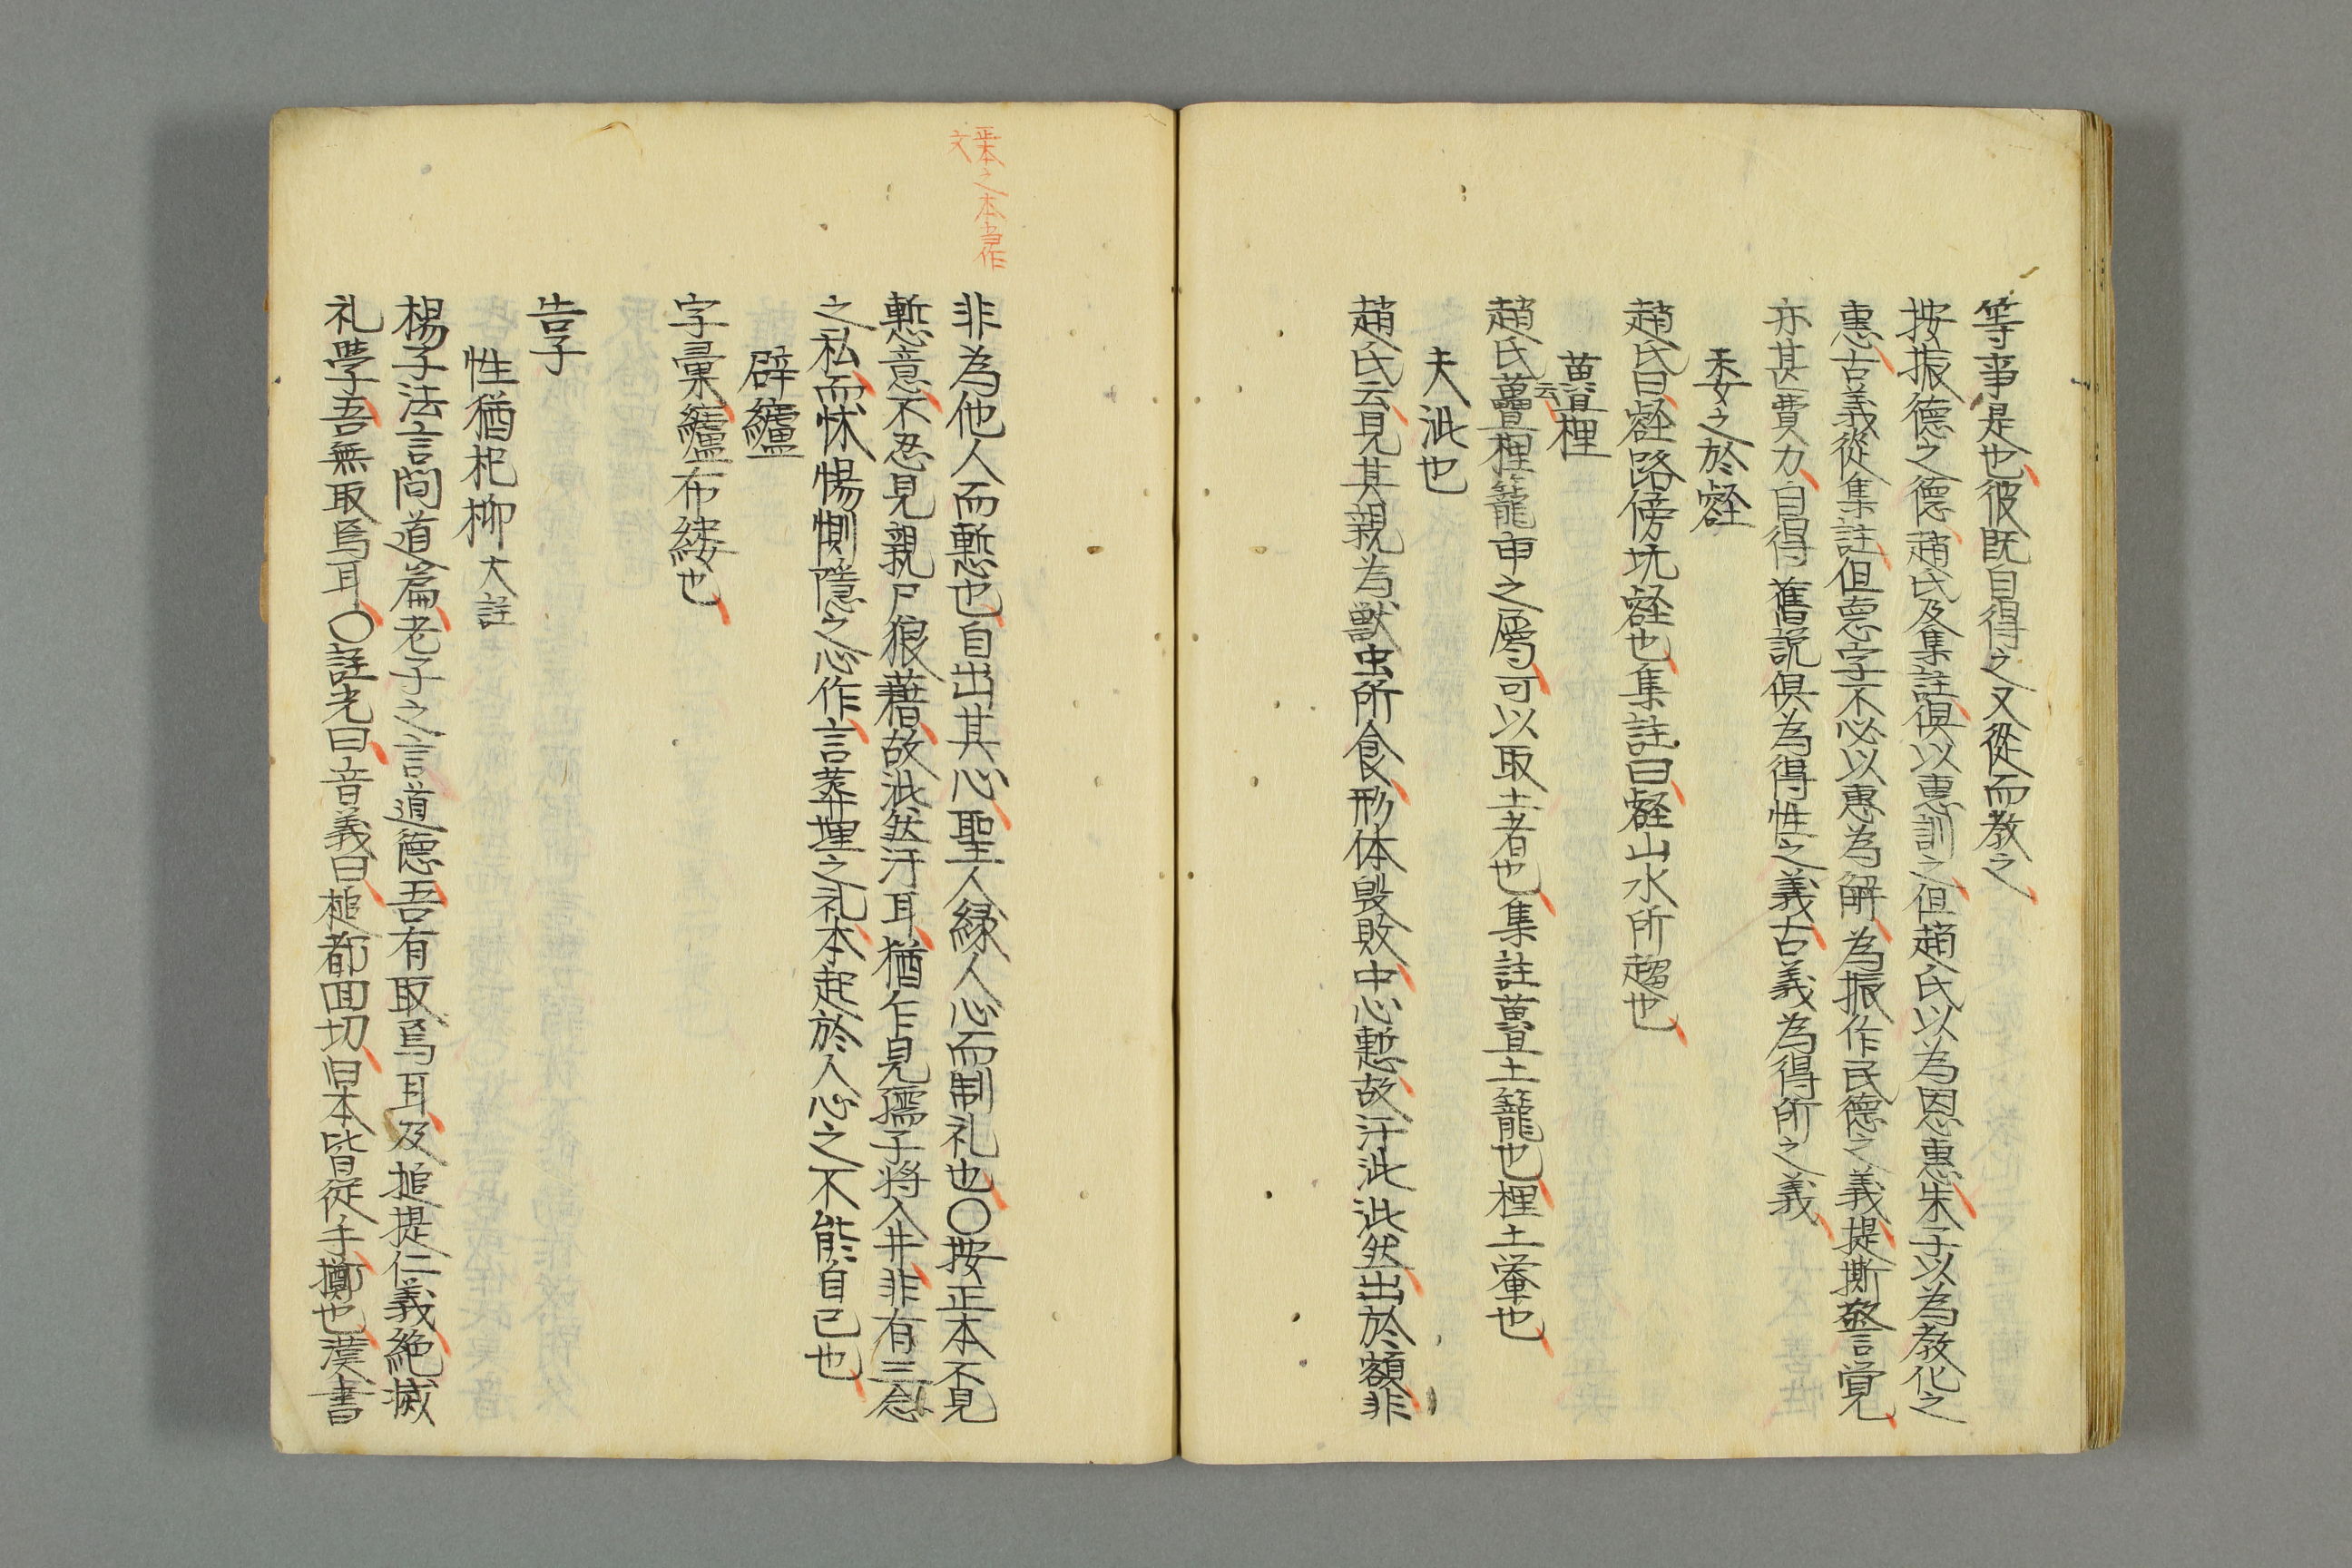 等事是也彼既自得之又從而教之
按振德之德趙氏及集註俱以惠訓之但趙氏以為恩惠朱子以為教化之
惠古義從集註但惪字不必以惠為解為振作民德之義提撕警言覚
亦甚費力自得舊説俱為得性之義古義為得所之義
委之於壑
趙氏曰壑路傍坑壑也集註曰壑山水所趨也
虆梩
趙氏云虆梩籠臿之屬可以取土者也集註虆土籠也梩土轝也
夫泚也
趙氏云見其親為獸虫所食形体毀敗中心慙故汗泚泚然出於額非
非為他人而慙也自出其心聖人緣人心而制礼也〇按正本不見
慙意不忍見親尸狼藉故泚然汗耳猶乍見孺子將入井非有三念
之私而怵惕惻隱之心作言葬埋之礼本起於人心之不能自己也
辟纑
字彙纑布縷也
告子
性猶杞柳 大註
楊子法言問道篇老子之言道德吾有取焉耳及搥提仁義絶滅
礼學吾無取焉耳〇註光曰音義曰搥都回切旧本皆從手擲也漢書
正本之本當作
文